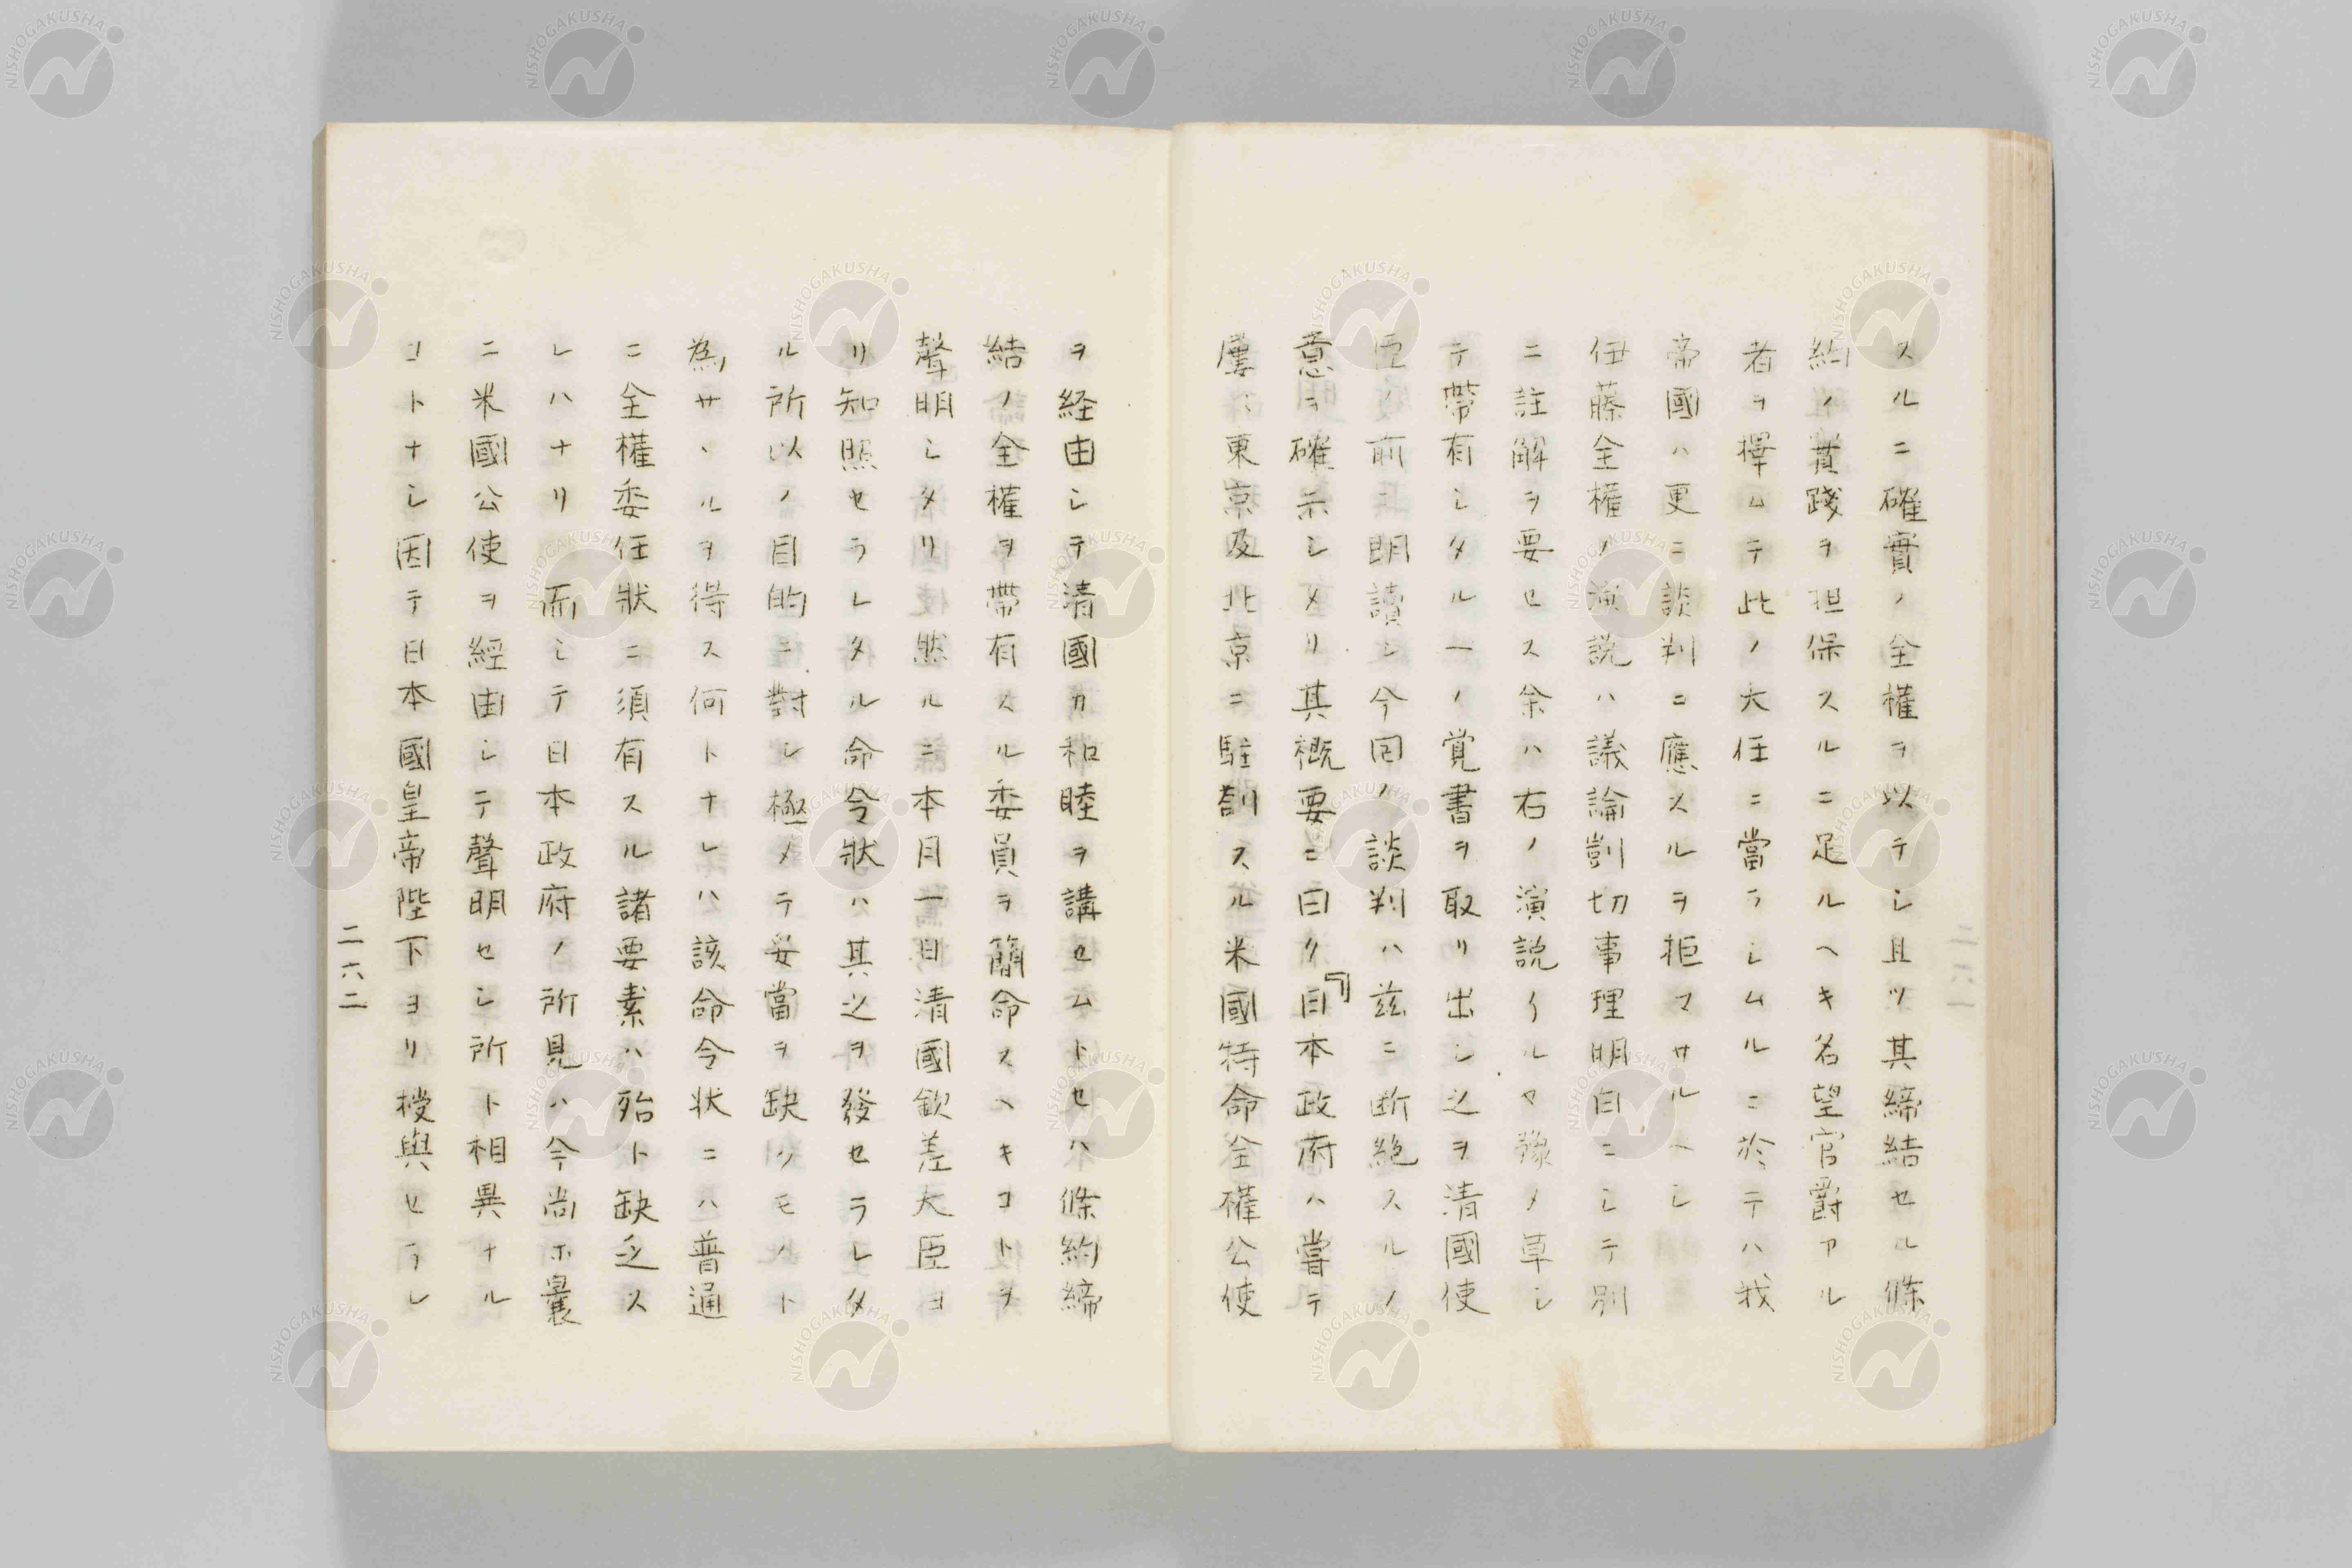 スルニ確實ノ全權ヲ以テシ且ツ其締結セル條
約ノ實踐ヲ担保スルニ足ルヘキ名望官爵アル
者ヲ擇ムテ此ノ大任ニ當ラシムルニ於テハ我
帝國ハ更ニ談判ニ應スルヲ拒マサルヘシ
伊藤全權ノ演説ハ議論剴切事理明白ニシテ別
ニ註解ヲ要セス余ハ右ノ演説イルマ豫メ草シ
テ帶有シタル一ノ覚書ヲ取リ出シ之ヲ清國使
臣ノ前ニ朗讀シ今回ノ談判ハ茲ニ断絶スルノ
意ヲ確示シメリ其概要ニ曰ク『日本政府ハ嘗テ
屢〻東京及北京ニ駐劄スル米國特命全權公使
二六一
ヲ経由シテ清國カ和睦ヲ講セムトセハ條約締
結ノ全權ヲ帶有スル委員ヲ簡命スヘキコトヲ
聲明シタリ然ルニ本月一日清國欽差大臣ヨ
リ知照セラレタル命令狀ハ其之ヲ發セラレタ
ル所以ノ目的ニ對シ極メテ妥當ヲ缺クモノト
為サヽルヲ得ス何トナレハ該命令状ニハ普通
ニ全權委任狀ニ須有スル諸要素ハ殆ト缺乏ス
レハナリ而シテ日本政府ノ所見ハ今尚ホ曩
ニ米國公使ヲ經由シテ聲明セシ所ト相異ナル
コトナシ因テ日本國皇帝陛下ヨリ授與セラレ
二六二
NISHOGAKUSHA